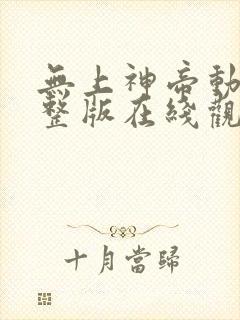 無上神帝動
整版在綫觀
十月當歸